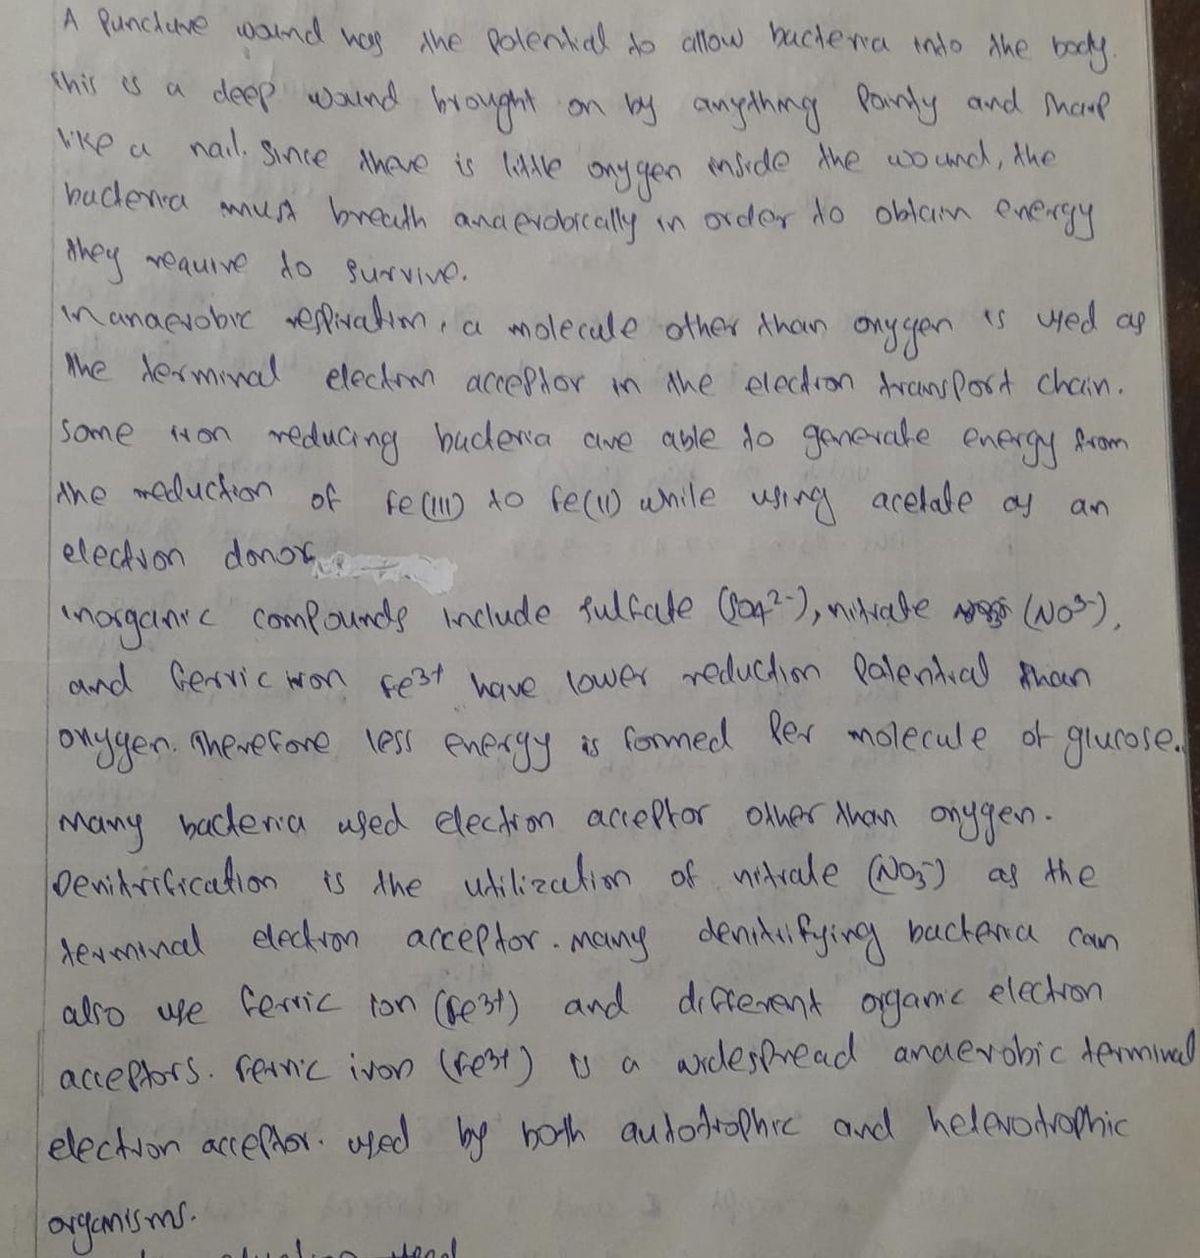 A Puncture wound has the potential to allow bacteria into the body.
this is a deep wound brought on by anything Pointy and sharp
like a nail. Since there is little oxygen inside the wound, the
bacteria must breath anaerobically in order to obtain energy
they require to survive.
in anaerobic respiration, a molecule other than oxygen is used as
the terminal electron acceptor in the electron transport chain.
Some iron reducing bacteria are able to generate energy from
the reduction of Fe(III) to Fe(II) while using acetate as an
electron donor
inorganic compounds include sulfate (SO4²⁻), nitrate (NO³⁻),
and ferric iron Fe³⁺ have lower reduction Potential than
oxygen. Therefore less energy is formed Per molecule of glucose.
Many bacteria used electron acceptor other than oxygen.
Denitrification is the utilization of nitrate (NO₃⁻) as the
terminal electron acceptor. many denitrifying bacteria can
also use ferric ion (Fe³⁺) and different organic electron
acceptors. Ferric iron (Fe³⁺) is a widespread anaerobic terminal
electron acceptor. used by both autotrophic and heterotrophic
organisms.